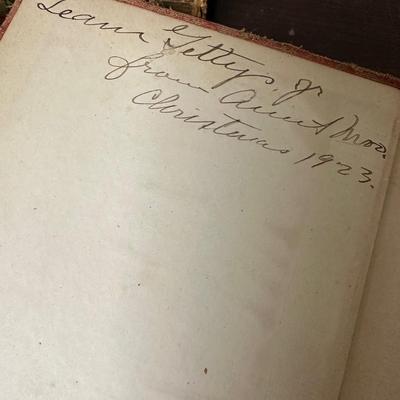 Leam Gettys, Jr
from Aunt Moo.
Christmas 1923.